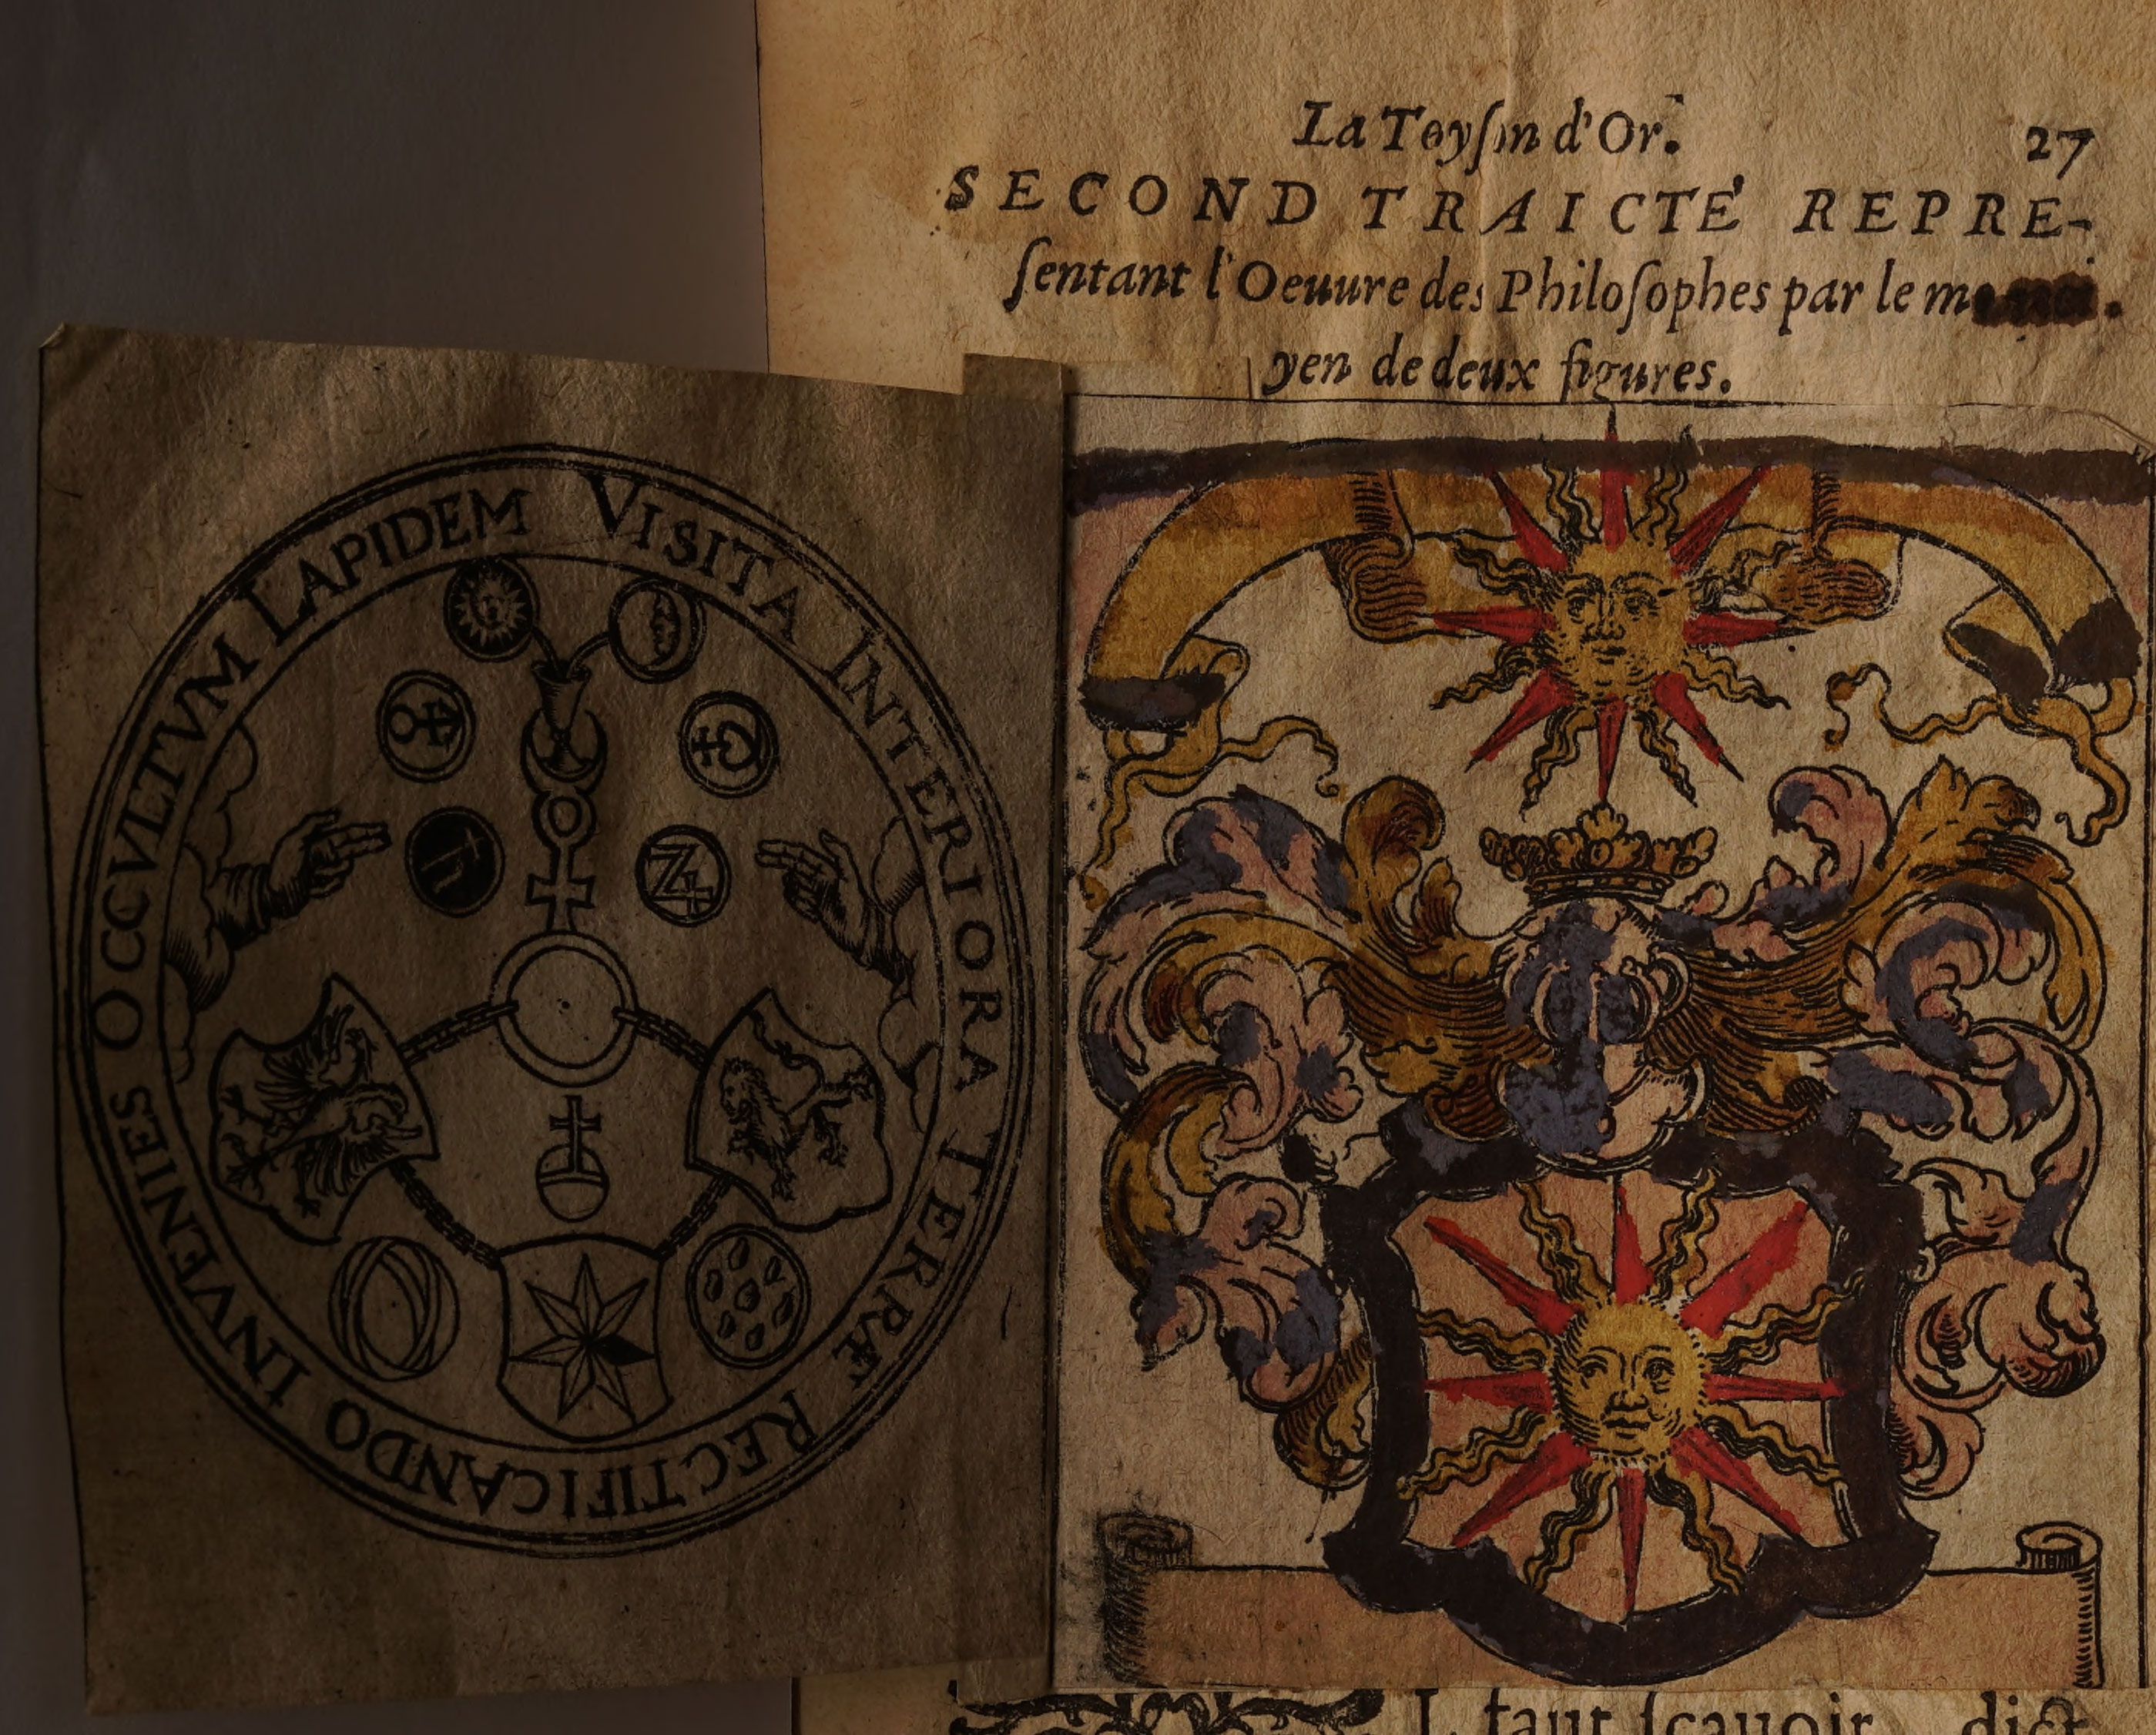 La Toyſın d'Or.
27
SECOND TRAICTÉ REPRE-
ſentant l'Oeuure des Philoſophes par le m
yen de deux figures.
VISITA INTERIORA TERRÆ RECTIFICANDO INVENIES OCCVLTVM LAPIDEM
I faut ſçauoir